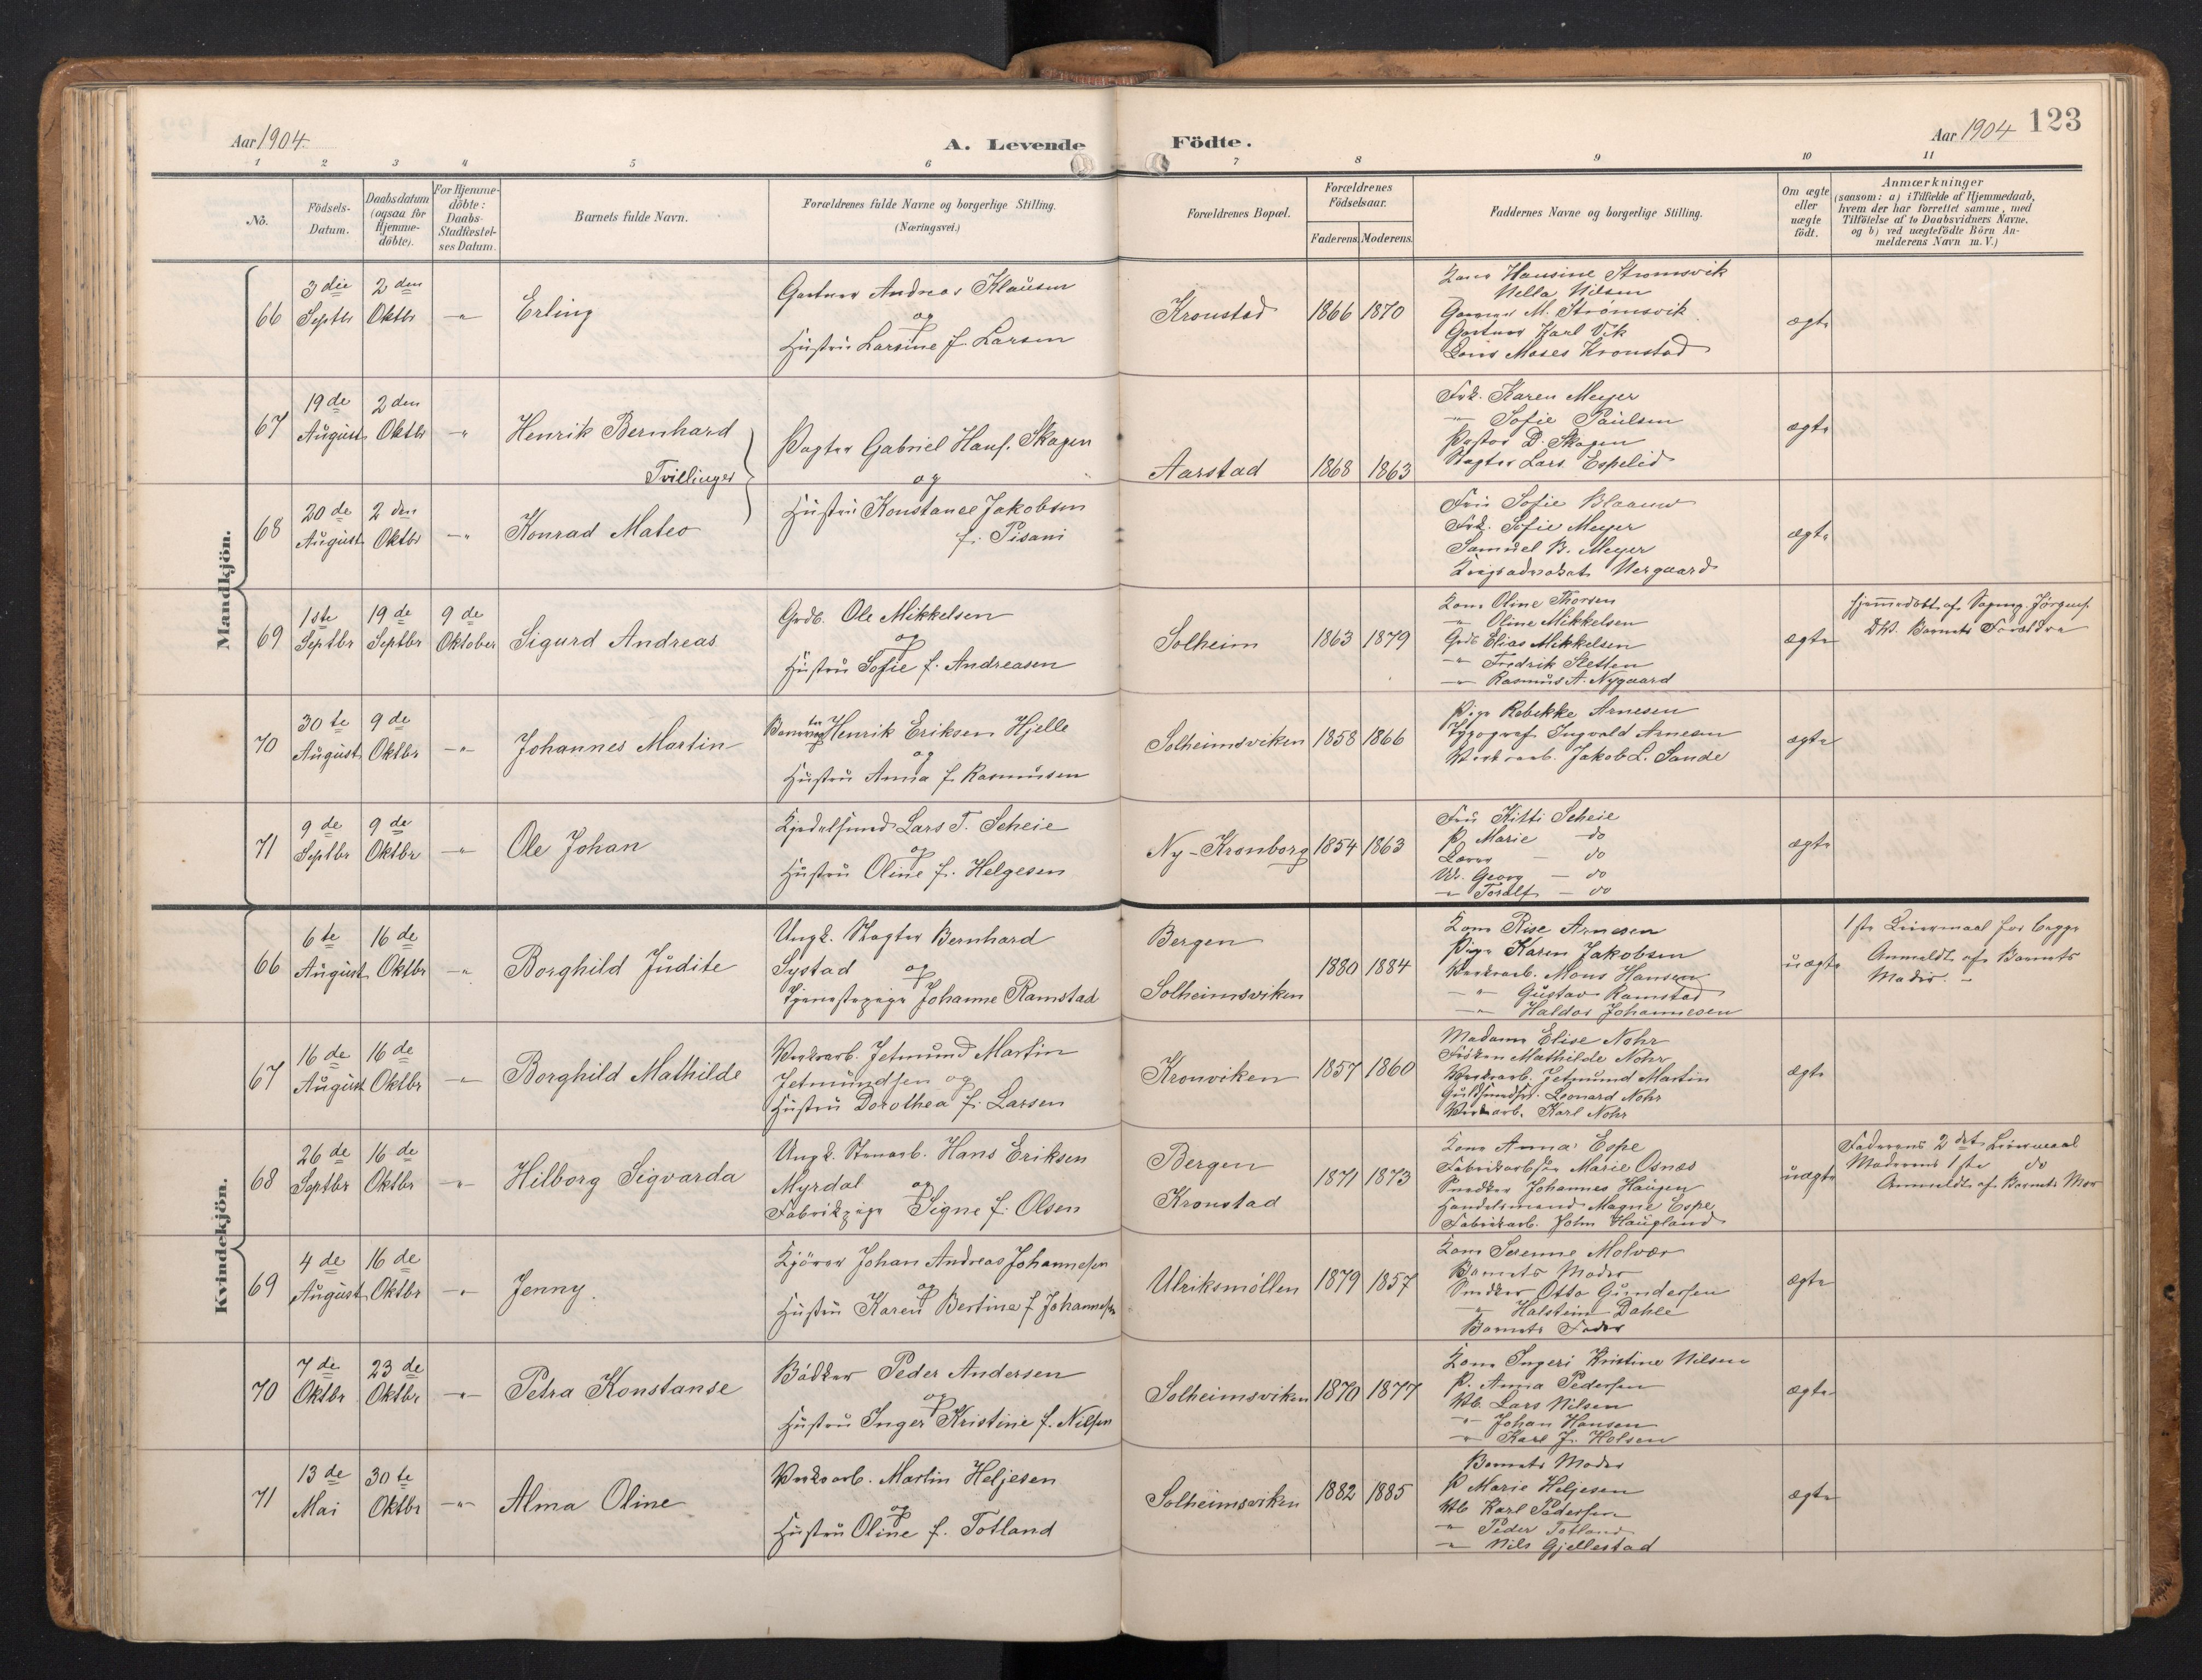 Aar 1904.
A. Levende Födte.
Aar 1904 123
1 2 3 4 5 6 7 8 9 10 11
No.
Födsels-
Datum.
Daabsdatum
(ogsaa for
Hjemme-
döbte).
For Hjemme-
döbte:
Daabs-
Stadfæstel-
ses Datum.
Barnets fulde Navn.
Forældrenes fulde Navne og borgerlige Stilling.
(Næringsvei.)
Forældrenes Bopæl.
Forældrenes
Födselsaar.
Faderens. Moderens.
Faddernes Navne og borgerlige Stilling.
Om ægte
eller
uægte
födt.
Anmærkninger
(saasom: a) i Tilfælde af Hjemmedaab,
hvem der har forrettet samme, med
Tilföielse af to Daabsvidners Navne.
og b) ved uægtefödte Börn An-
melderens Navn m. V.)
Mandkjön.
66
3die
Septbr
2den
Oktbr
-"-
Erling
Gartner Andreas Klausen
og
Hustru Larsine f. Larsen
Kronstad
1866 1870
Kone Hansine Strømsvik
Nella Nilsen
M. Strømsvik
Gartner Karl Vik
Moses Kronstad
ægte
67
19de
August
2den
Oktbr
-"-
Henrik Bernhard
Tvillinger
Pagter Gabriel Hans. Skagen
og
Aarstad
1868 1863
Frk. Karen Meyer
-"- Sofie Paulsen
Pastor D. Skagen
Lars Espelid
ægte
68
20de
August
2den
Oktbr
-"-
Konrad Mateo
Hustru Konstance Jakobsen
f. Pisani
Fru Sofie Blaauw
Frk. Sofie Meyer
Samuel B. Meyer
Krigsadvokat Nergaard
ægte
69
1ste
Septbr
19de
Septbr
9de
Oktober
Sigurd Andreas
Grdb. Ole Mikkelsen
og
Hustru Sofie f. Andreasen
Solheim
1863 1879
Kone Oline Thorsen
-"- Oline Mikkelsen
Grdb Elias Mikkelsen
-"- Fredrik Sletten
-"- Rasmus A. Nygaard
ægte
Hjemmedøbt af Sogнepr. Jörgens.
DV. Barnets Forældre
70
30te
August
9de
Oktbr
-"-
Johannes Martin
Henrik Eriksen Hjelle
og
Hustru Anna f. Rasmussen
Solheimsviken
1858 1866
Pige Rebekke Arnesen
Typograf Ingvald Arnesen
Verksarb. Jakob L. Sande
ægte
71
9de
Septbr
9de
Oktbr
-"-
Ole Johan
Kjedelsmed Lars T. Scheie
og
Hustru Oline f. Helgesen
Ny-Kronborg
1854 1863
Fru Kitti Scheie
P. Marie do
Lærer - do
Uk. Georg - do
-"- Toralf - do
ægte
Kvindekjön.
66
6te
August
16de
Oktbr
-"-
Borghild Judite
Ungk. Slagter Bernhard
Systad og
Tjenestepige Johanne Ramstad
Bergen
Solheimsviken
1880 1884
Kone Rise Arnesen
Pige Karen Jakobsen
Verksarb. Mons Hansen
-"- Gustav Ramstad
-"- Haldor Johannesen
uægte
1ste Leiermaal for begge
Anmeldt af Barnets
Moder. -
67
16de
August
16de
Oktbr
-"-
Borghild Mathilde
Verksarb. Jetmund Martin
Jetmundsen og
Hustru Dorothea f. Larsen
Kronviken
1857 1860
Madame Elise Nohr
Frøken Mathilde Nohr
Verksarb. Jetmund Martin
Guldsmedsv. Leonard Nohr
Verksarb. Karl Nohr
ægte
68
26de
Septbr
16de
Oktbr
-"-
Hilborg Sigvarda
Ungk. Stenarb. Hans Eriksen
Myrdal og
Fabrikpige Signe f. Olsen
Bergen
Kronstad
1871 1873
Kone Anna Espe
Fabrikarbske Marie Osnæs
Snedker Johannes Haugen
Handelsmand Magne Espe
Fabrikarb. John Haugland
uægte
Faderens 2det Leiermaal
Moderens 1ste do
Anmeldt af Barnets Mor
69
4de
August
16de
Oktbr
-"-
Jenny.
Kjører Johan Andreas Johannesen
og
Hustru Karen Bertine f Johannesen
Ulriksmöllen
1879 1857
Kone Serenne Molvær
Barnets Moder
Snedker Otto Gundersen
-"- Halstein Dahle
Barnets Fader
ægte
70
7de
Oktbr
23de
Oktbr
-"-
Petra Konstanse
Bödker Peder Andersen
og
Hustru Inger Kristine f. Nilsen
Solheimsviken
1870 1877
Kone Ingeri Kristine Nilsen
P. Anna Pedersen
Vb. Lars Nilsen
-"- Johan Hansen
-"- Karl J. Holsen
ægte
71
13de
Mai
30te
Oktbr
-"-
Alma Oline
Verksarb. Martin Heljesen
og
Hustru Oline f. Totland
Solheimsviken
1882 1885
Barnets Moder
P Marie Heljesen
Vb Karl Pedersen
-"- Peder Totland
-"- Nils Gjellestad
ægte